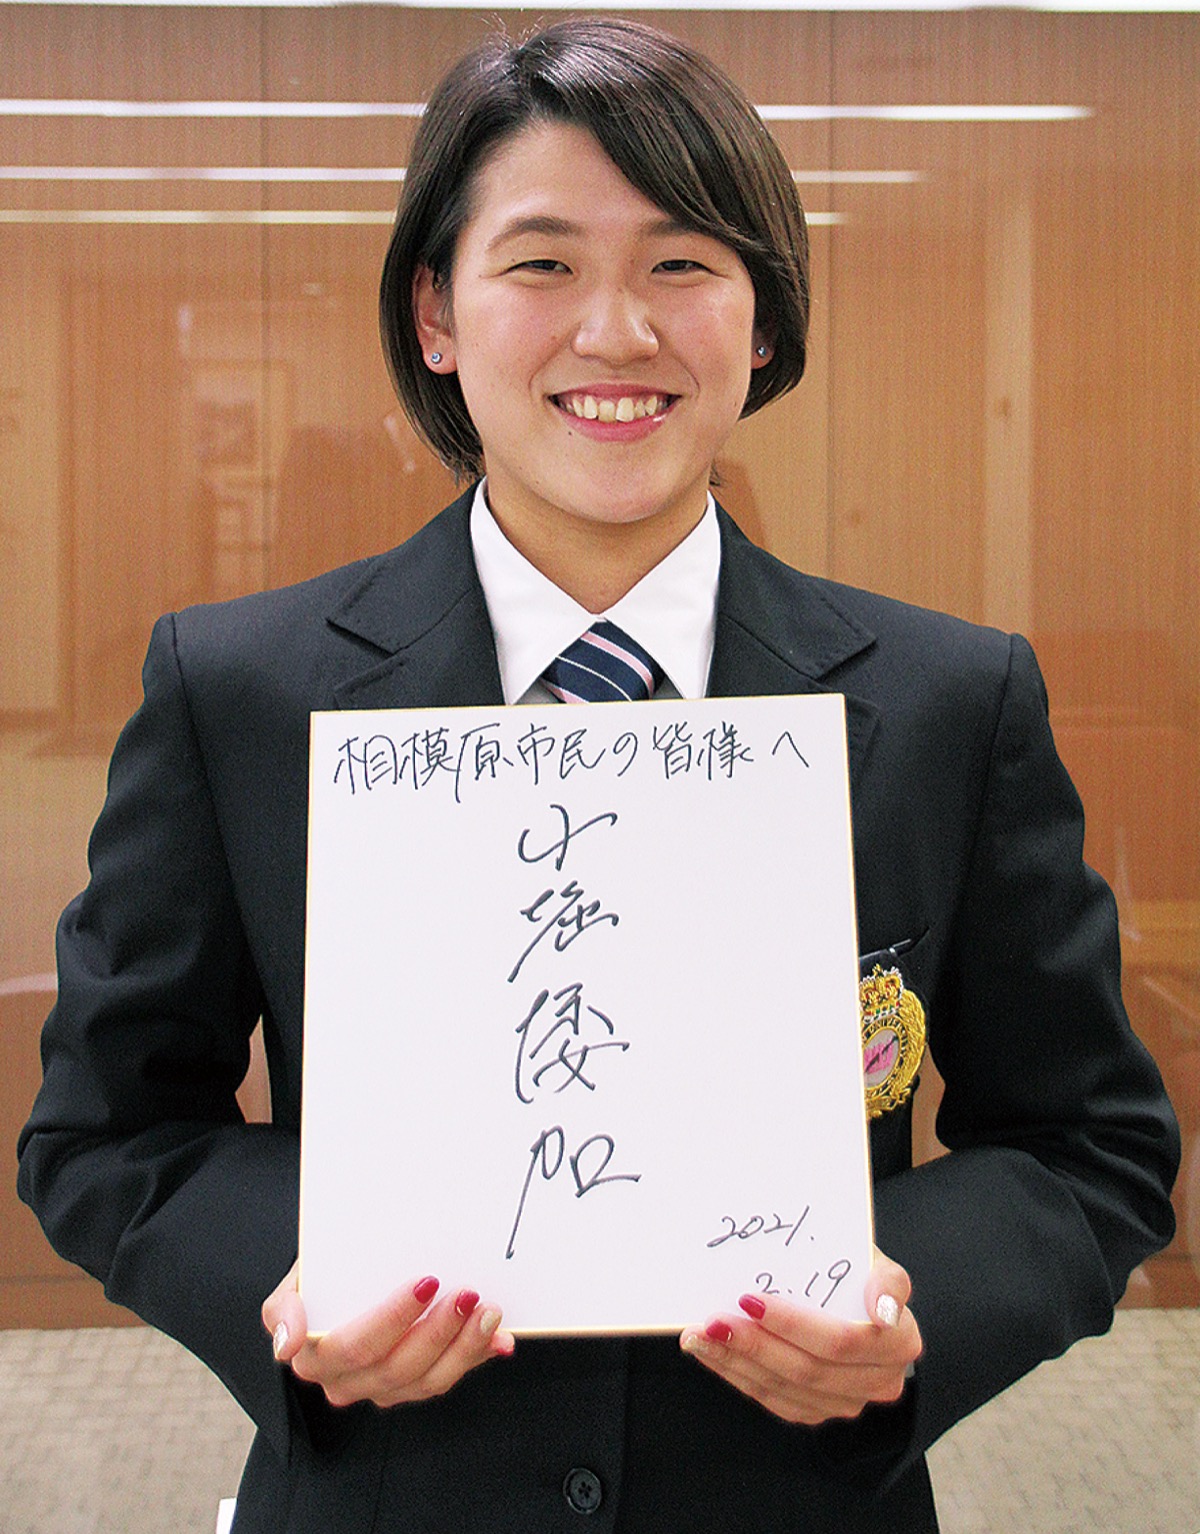 相模原市民の皆様へ
小堀倭加
2021.
2.19